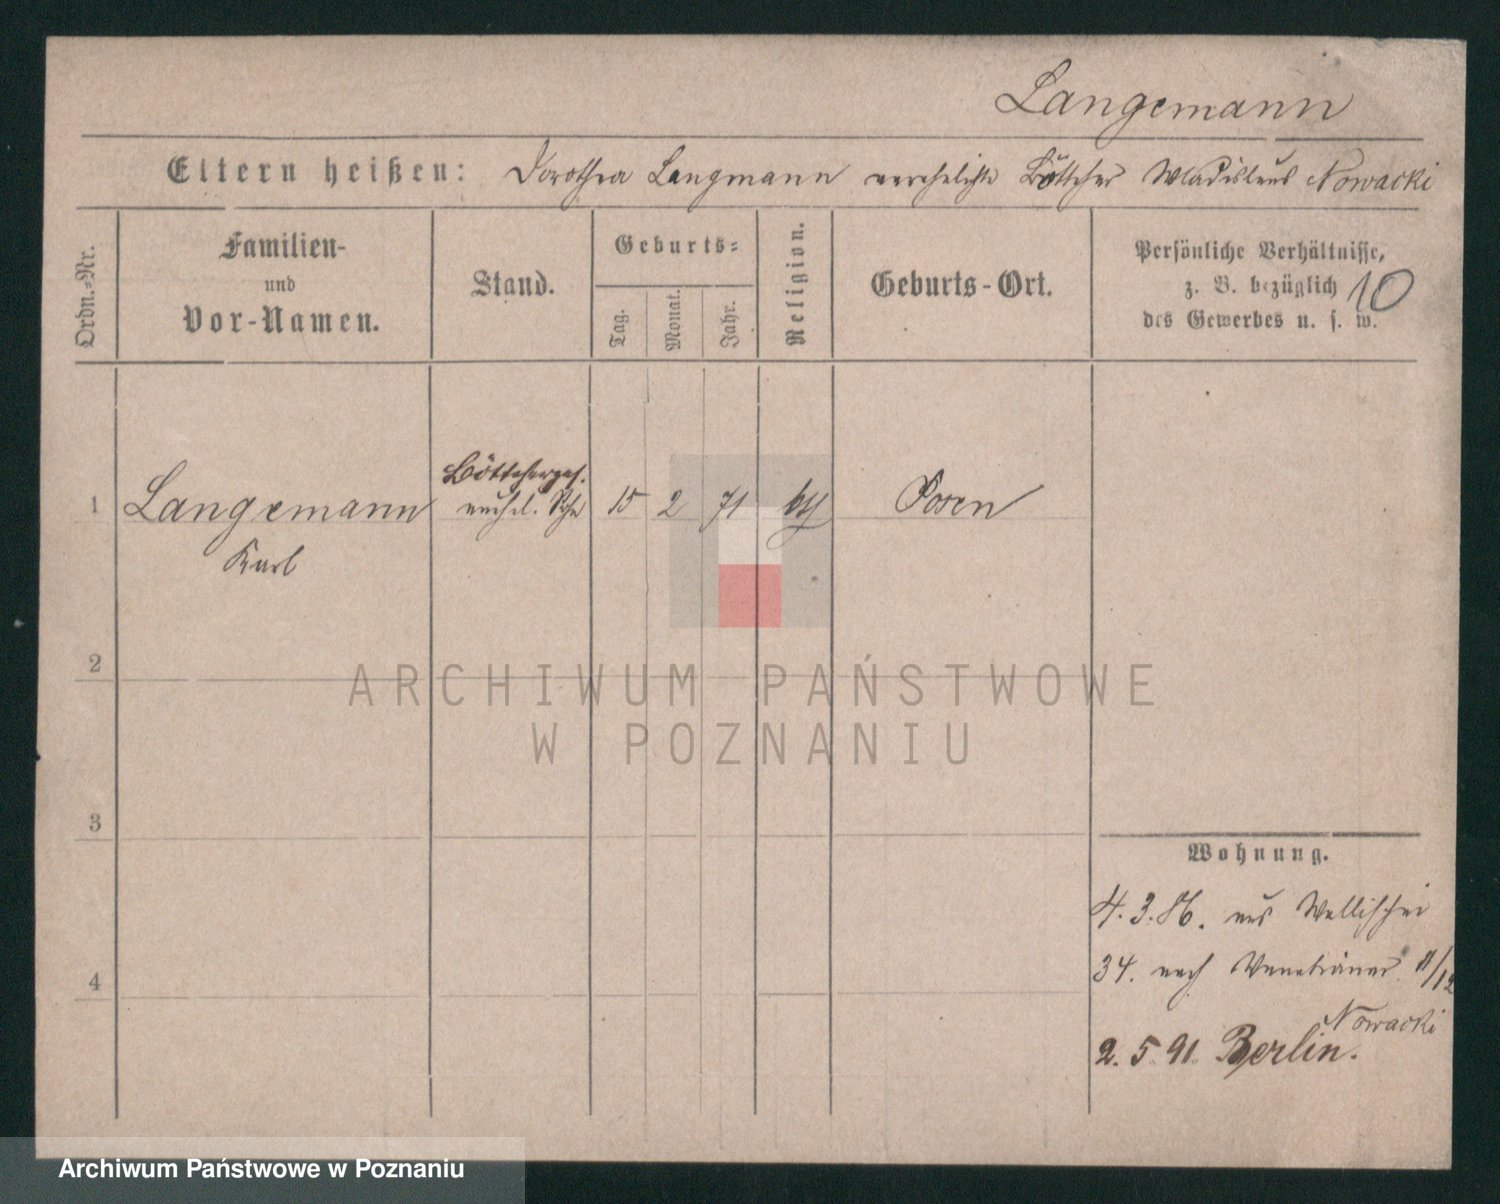 Langemann
Eltern heißen: Dorothea Langmann verehelichte Böttcher Wladislaus Nowacki
Ordn.-Nr.
Familien-
und
Vor-Namen.
Stand.
Geburts-
Tag.
Monat.
Jahr.
Religion.
Geburts-Ort.
Persönliche Verhältnisse,
z. B. bezüglich
des Gewerbes u. s. w.
10
Böttcherges.
1 Langemann unehel. 15 2 71 kth Posen
Karl
2
ARCHIWUM PAŃSTWOWE
W POZNANIU
3
Wohnung.
4. 3. 86. aus Wallischei
4
34. nach Venetianer 11/12
Nowacki
2. 5. 91. Berlin.
Archiwum Państwowe w Poznaniu